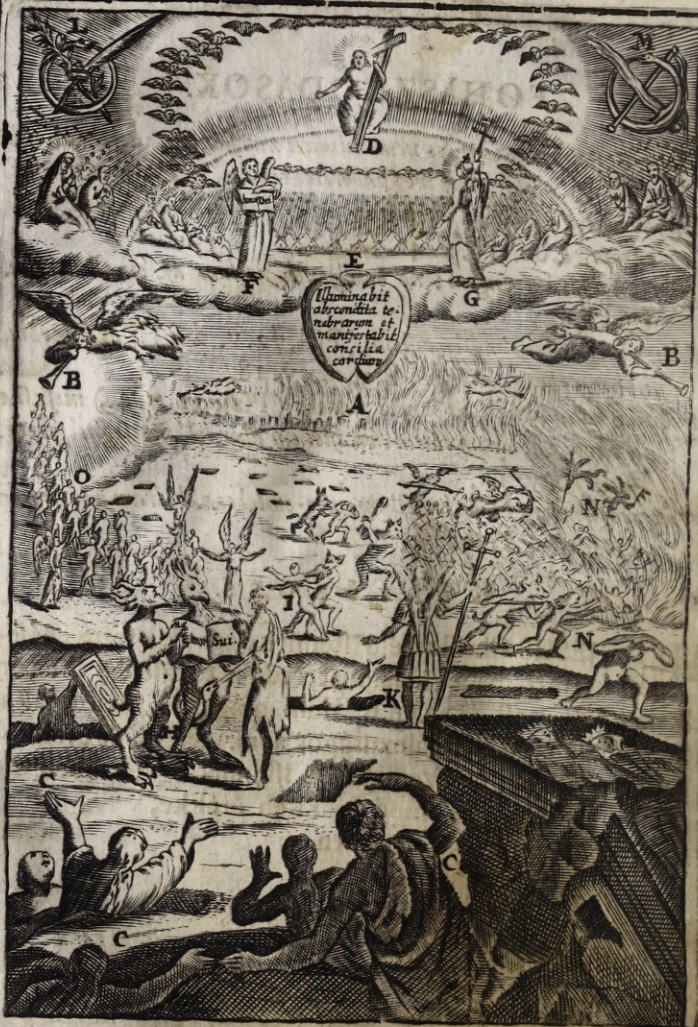 L
M
D
Amor Dei
E
F
G
Illuminabit
abscondita te-
nebrarum et
manifestabit
consilia
cordium
B
B
A
O
N
I
Amor Sui.
N
K
H
C
C
C